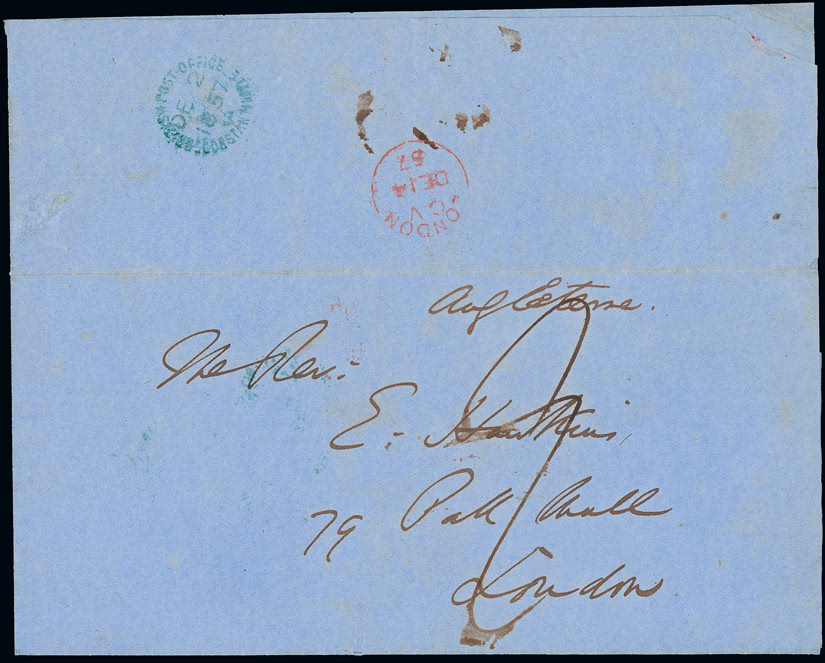 POST-OFFICE
DE 2
1857
LONDON
CV
DE 14
57
Angleterre.
The Rev:
E: Hawkins,
79 Pall Mall
London